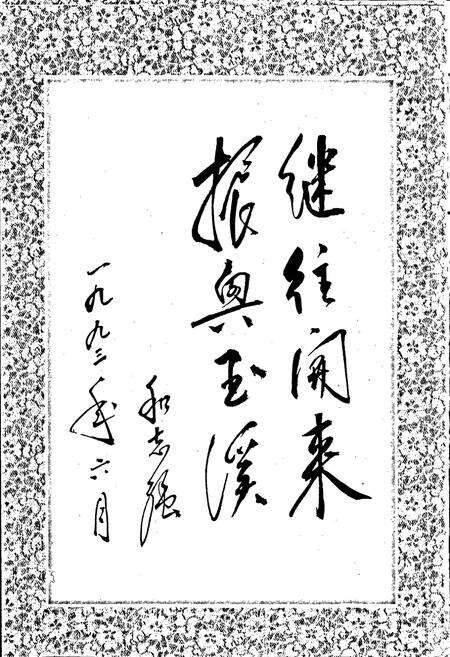 继往開来
振興玉溪
和志强
一九九三年六月